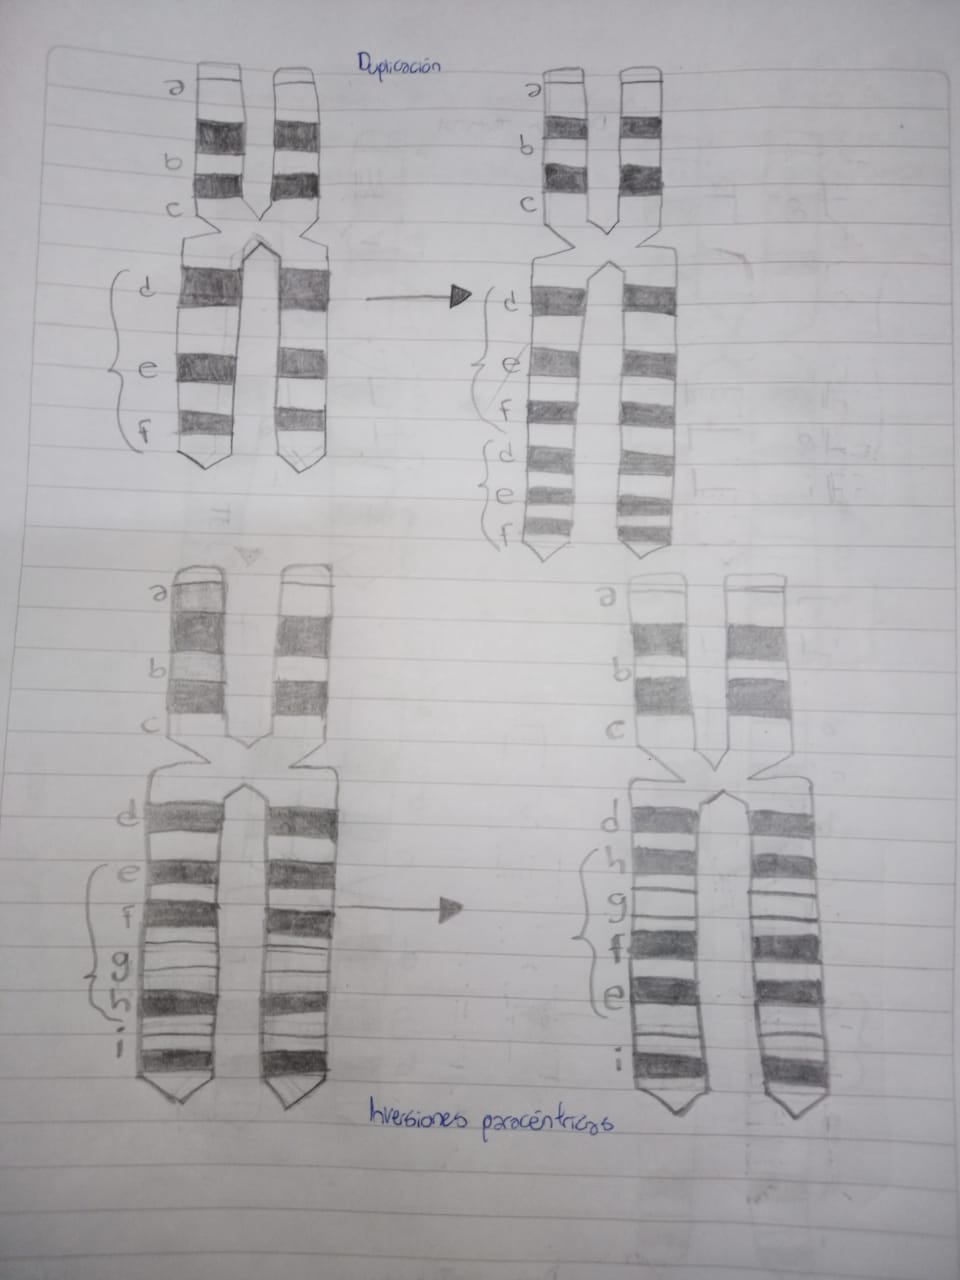 Duplicación
a
b
c
d
e
f
a
b
c
d
e
f
d
e
f
a
b
c
d
e
f
g
h
i
a
b
c
d
h
g
f
e
i
Inversiones paracéntricas